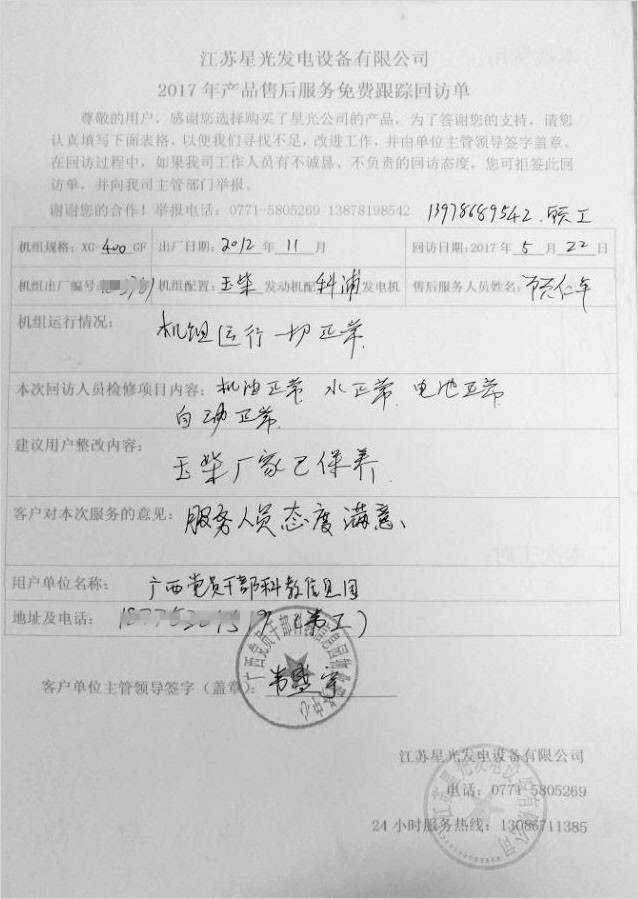 江苏星光发电设备有限公司
2017年产品售后服务免费跟踪回访单
尊敬的用户，感谢您选择购买了星光公司的产品，为了答谢您的支持，请您
认真填写下面表格，以便我们寻找不足，改进工作，并由单位主管领导签字盖章。
在回访过程中，如果我司工作人员有不诚恳、不负责的回访态度，您可拒签此回
访单，并向我司主管部门举报。
谢谢您的合作！举报电话：0771-5805269 13878198542 13978689542
机组规格：XG-400GF 出厂日期：2012年11月 回访日期：2017年5月22日
机组出厂编号： 机组配置：玉柴发动机配科浦发电机 售后服务人员姓名：
机组运行情况：机组运行一切正常
本次回访人员检修项目内容：机油正常 水正常 电池正常
自动正常
建议用户整改内容：
玉柴厂家已保养
客户对本次服务的意见：服务人员态度满意
用户单位名称：广西党员干部科教信息园
地址及电话：
客户单位主管领导签字（盖章）：
江苏星光发电设备有限公司
电话：0771-5805269
24小时服务热线：13086711385